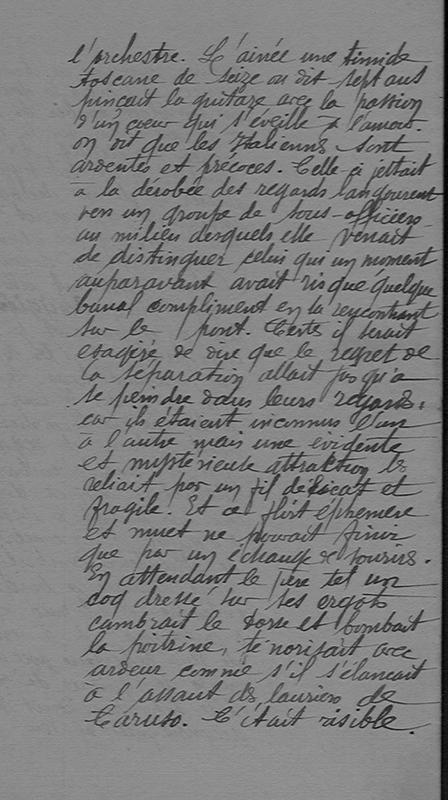 l'orchestre. L'ainée une timide
toscane de seize ou dit sept ans
pinçait la guitare avec la passion
d'un cœur qui s'éveille à l'amour.
on dit que les Italiennes sont
ardentes et précoces. Celle ci jettait
à la derobée des regards langoureux
vers un groupe de sous-officiers
au milieu desquels elle venait
de distinguer celui qui un moment
auparavant avait risqué quelque
banal compliment en la rencontrant
sur le pont. Certe il serait
exagéré de dire que le regret de
la séparation allait jusqu'a
se peindre dans leurs regards.
car ils étaient inconnus l'un
a l'autre mais une évidente
et mystérieuse attraction les
reliait par un fil délicat et
fragile. Et ce flirt éphemere
et muet ne pouvait finir
que par un echange de souris.
En attendant le père tel un
coq dressé sur ses ergots
cambrait le torse et bombait
la poitrine, ténorisait avec
ardeur comme s'il s'élancait
à l'assaut des lauriers de
Caruso. C'était risible.